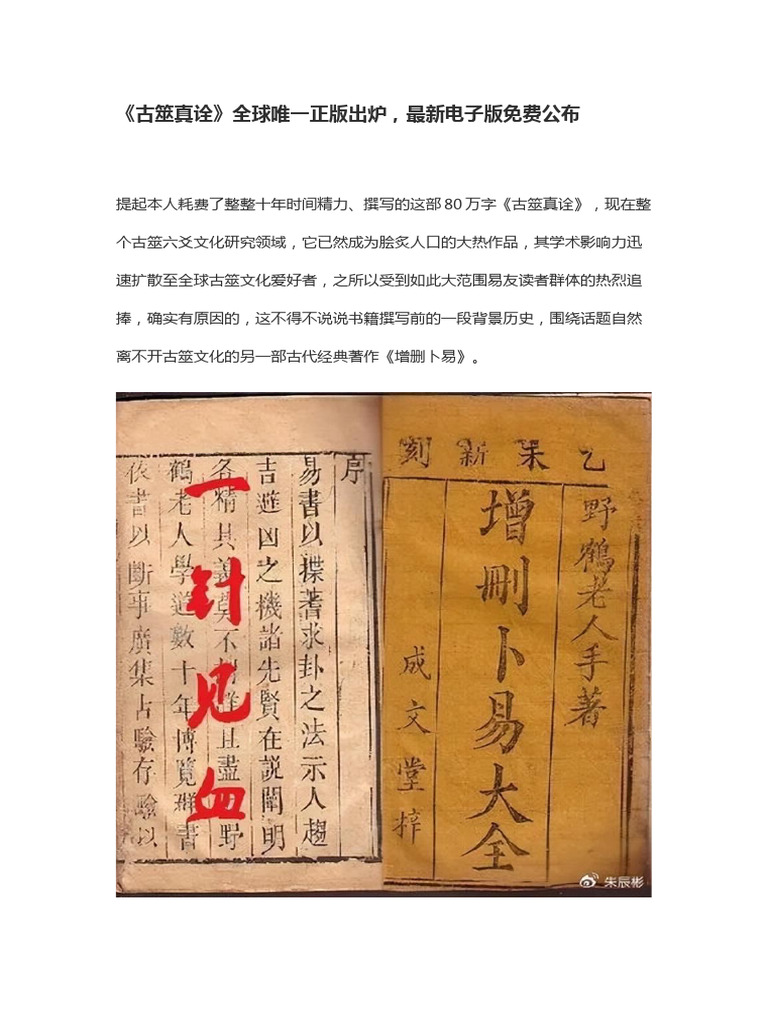 《古筮真诠》全球唯一正版出炉，最新电子版免费公布
提起本人耗费了整整十年时间精力、撰写的这部 80 万字《古筮真诠》，现在整
个古筮六爻文化研究领域，它已然成为脍炙人口的大热作品，其学术影响力迅
速扩散至全球古筮文化爱好者，之所以受到如此大范围易友读者群体的热烈追
捧，确实有原因的，这不得不说说书籍撰写前的一段背景历史，围绕话题自然
离不开古筮文化的另一部古代经典著作《增删卜易》。
乙未新刻
野鶴老人手著
增刪卜易大全
成文堂梓
序
易書以揲蓍求卦之法示人趨
吉避凶之機諸先賢在説闡明
各精其義莫不且盡野
鶴老人學道數十年博覽群書
依書以斷事廣集占驗存驗以
一针见血
朱辰彬